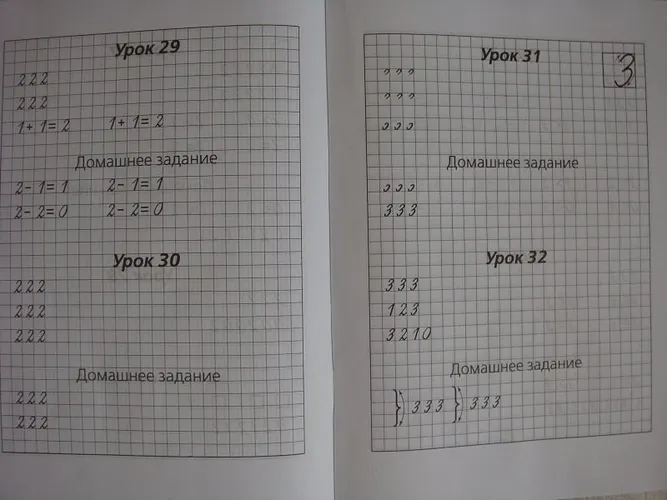 Урок 29
2 2 2
2 2 2
1 + 1 = 2 1 + 1 = 2
Домашнее задание
2 - 1 = 1 2 - 1 = 1
2 - 2 = 0 2 - 2 = 0
Урок 30
2 2 2
2 2 2
2 2 2
Домашнее задание
2 2 2
2 2 2
Урок 31
3
Домашнее задание
3 3 3
Урок 32
3 3 3
1 2 3
3 2 1 0
Домашнее задание
3 3 3 3 3 3